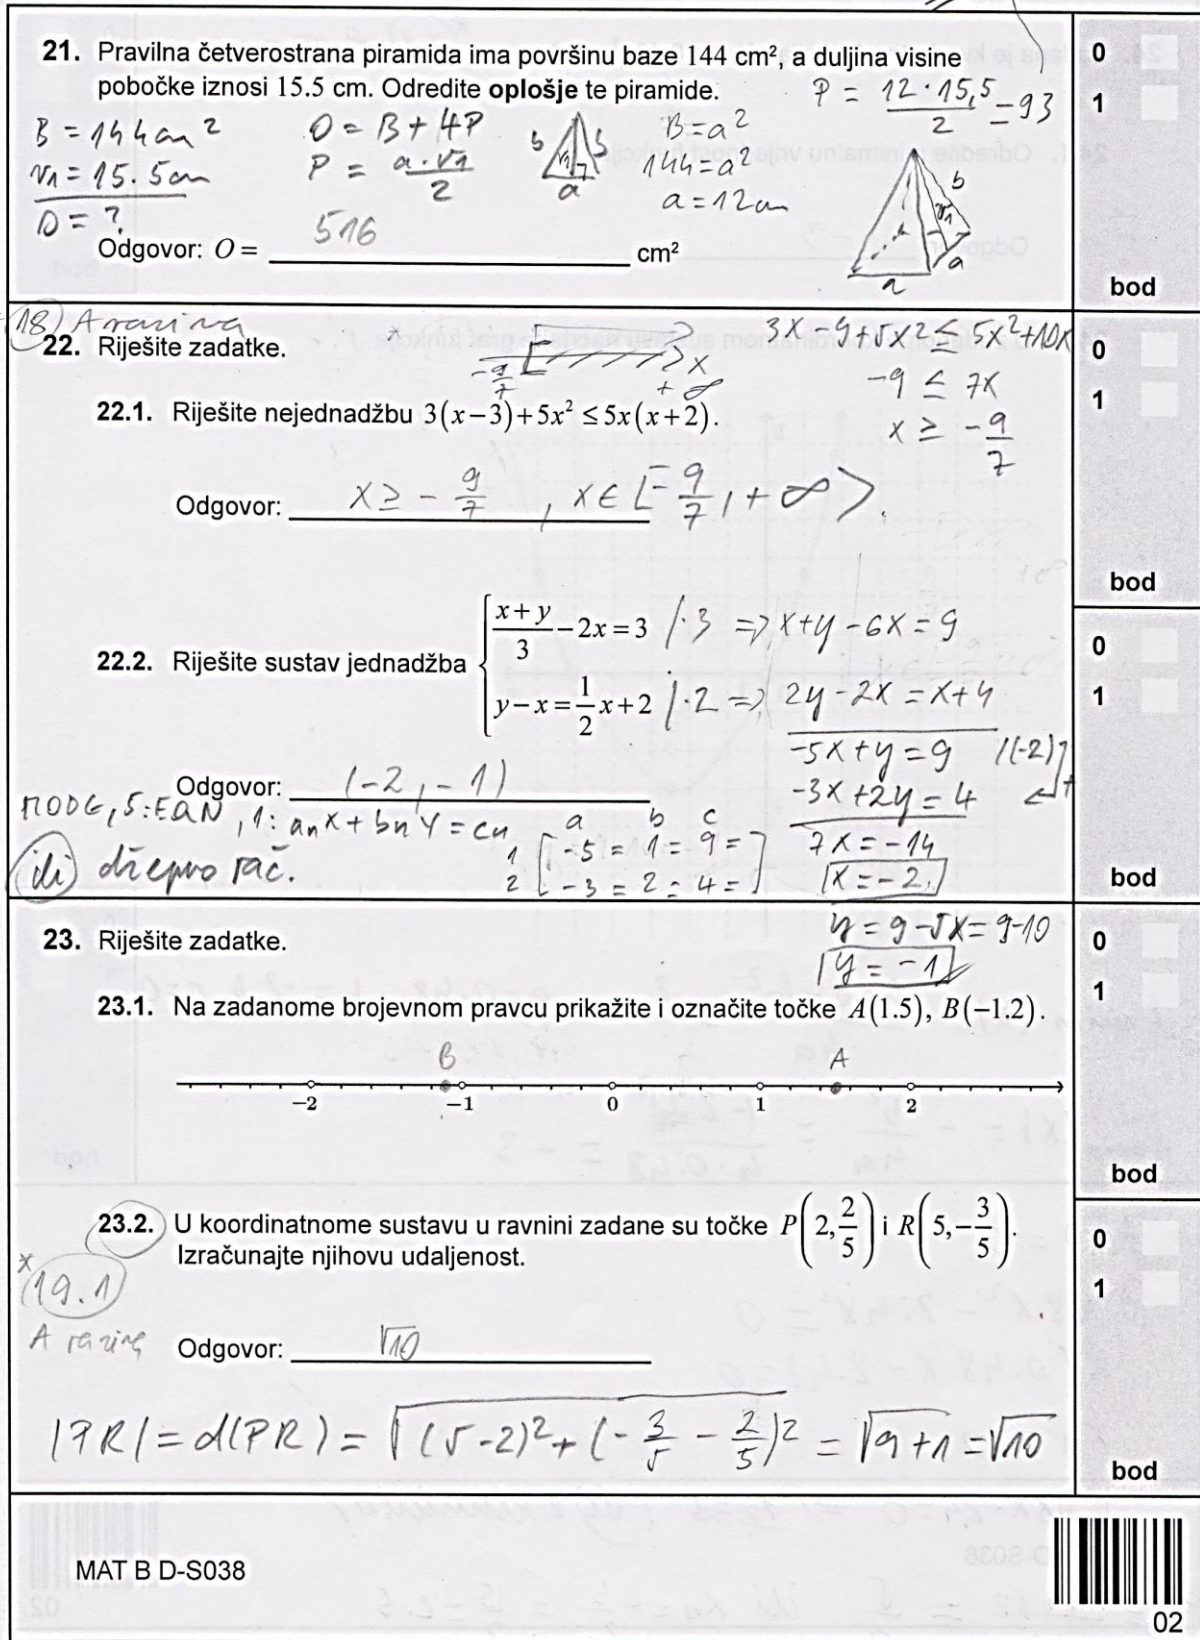 21. Pravilna četverostrana piramida ima površinu baze 144 cm², a duljina visine
pobočke iznosi 15.5 cm. Odredite oplošje te piramide.
P = 12·15,5/2 = 93
B = 144cm²
O = B + 4P
b b
a
B = a²
v1 = 15.5cm
P = a·v1/2
144 = a²
a = 12cm
O = ?
b
v1
a
a
Odgovor: O = 516 cm²
0
1
bod
18) A razina
22. Riješite zadatke.
-9/7
+∞
x
3x - 9 + 5x² ≤ 5x² + 10x
-9 ≤ 7x
x ≥ -9/7
22.1. Riješite nejednadžbu 3(x−3)+5x² ≤ 5x(x+2).
Odgovor: x ≥ -9/7, x∈[-9/7, +∞>.
0
1
bod
22.2. Riješite sustav jednadžba
(x+y)/3 − 2x = 3 /·3 => x+y-6x = 9
y−x = 1/2 x+2 /·2 => 2y-2x = x+4
-5x+y = 9 /(-2)
-3x+2y = 4 +
7x = -14
x = -2
Odgovor: (-2, -1)
MODE, 5:EQN, 1: anX+bnY=cn
a b c
1 [-5 = 1 = 9 =
2 -3 = 2 = 4 =]
ili džepno rač.
0
1
bod
23. Riješite zadatke.
y = 9-5x = 9-10
y = -1
23.1. Na zadanome brojevnom pravcu prikažite i označite točke A(1.5), B(−1.2).
B A
−2 −1 0 1 2
0
1
bod
23.2. U koordinatnome sustavu u ravnini zadane su točke P(2, 2/5) i R(5, −3/5).
Izračunajte njihovu udaljenost.
* 19.1
A razina
Odgovor: √10
|PR| = d(PR) = √((5-2)²+(-3/5 - 2/5)²) = √(9+1) = √10
0
1
bod
MAT B D-S038
02